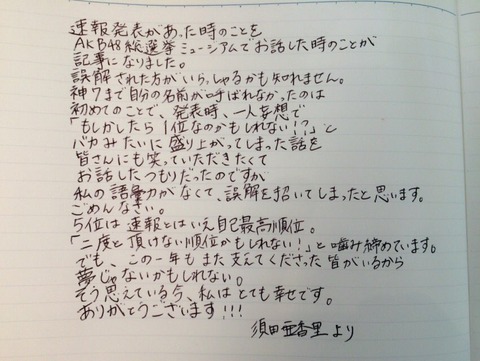 速報発表があった時のことを
AKB48総選挙ミュージアムでお話した時のことが
記事になりました。
誤解された方がいらっしゃるかも知れません。
神7まで自分の名前が呼ばれなかったのは
初めてのことで、発表時、一人妄想で
「もしかしたら1位なのかもしれない!?」と
バカみたいに盛り上がってしまった話を
皆さんにも笑っていただきたくて
お話したつもりだったのですが
私の語彙力がなくて、誤解を招いてしまったと思います。
ごめんなさい。
5位は速報とはいえ自己最高順位。
「二度と頂けない順位かもしれない!」と噛み締めています。
でも、この一年もまた支えてくださった皆がいるから
夢じゃないかもしれない。
そう思えている今、私はとても幸せです。
ありがとうございます!!!
須田亜香里より